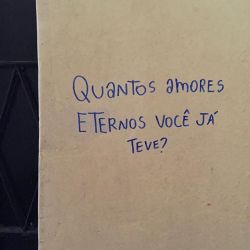 QUANTOS AMORES
ETERNOS VOCÊ JÁ
TEVE?